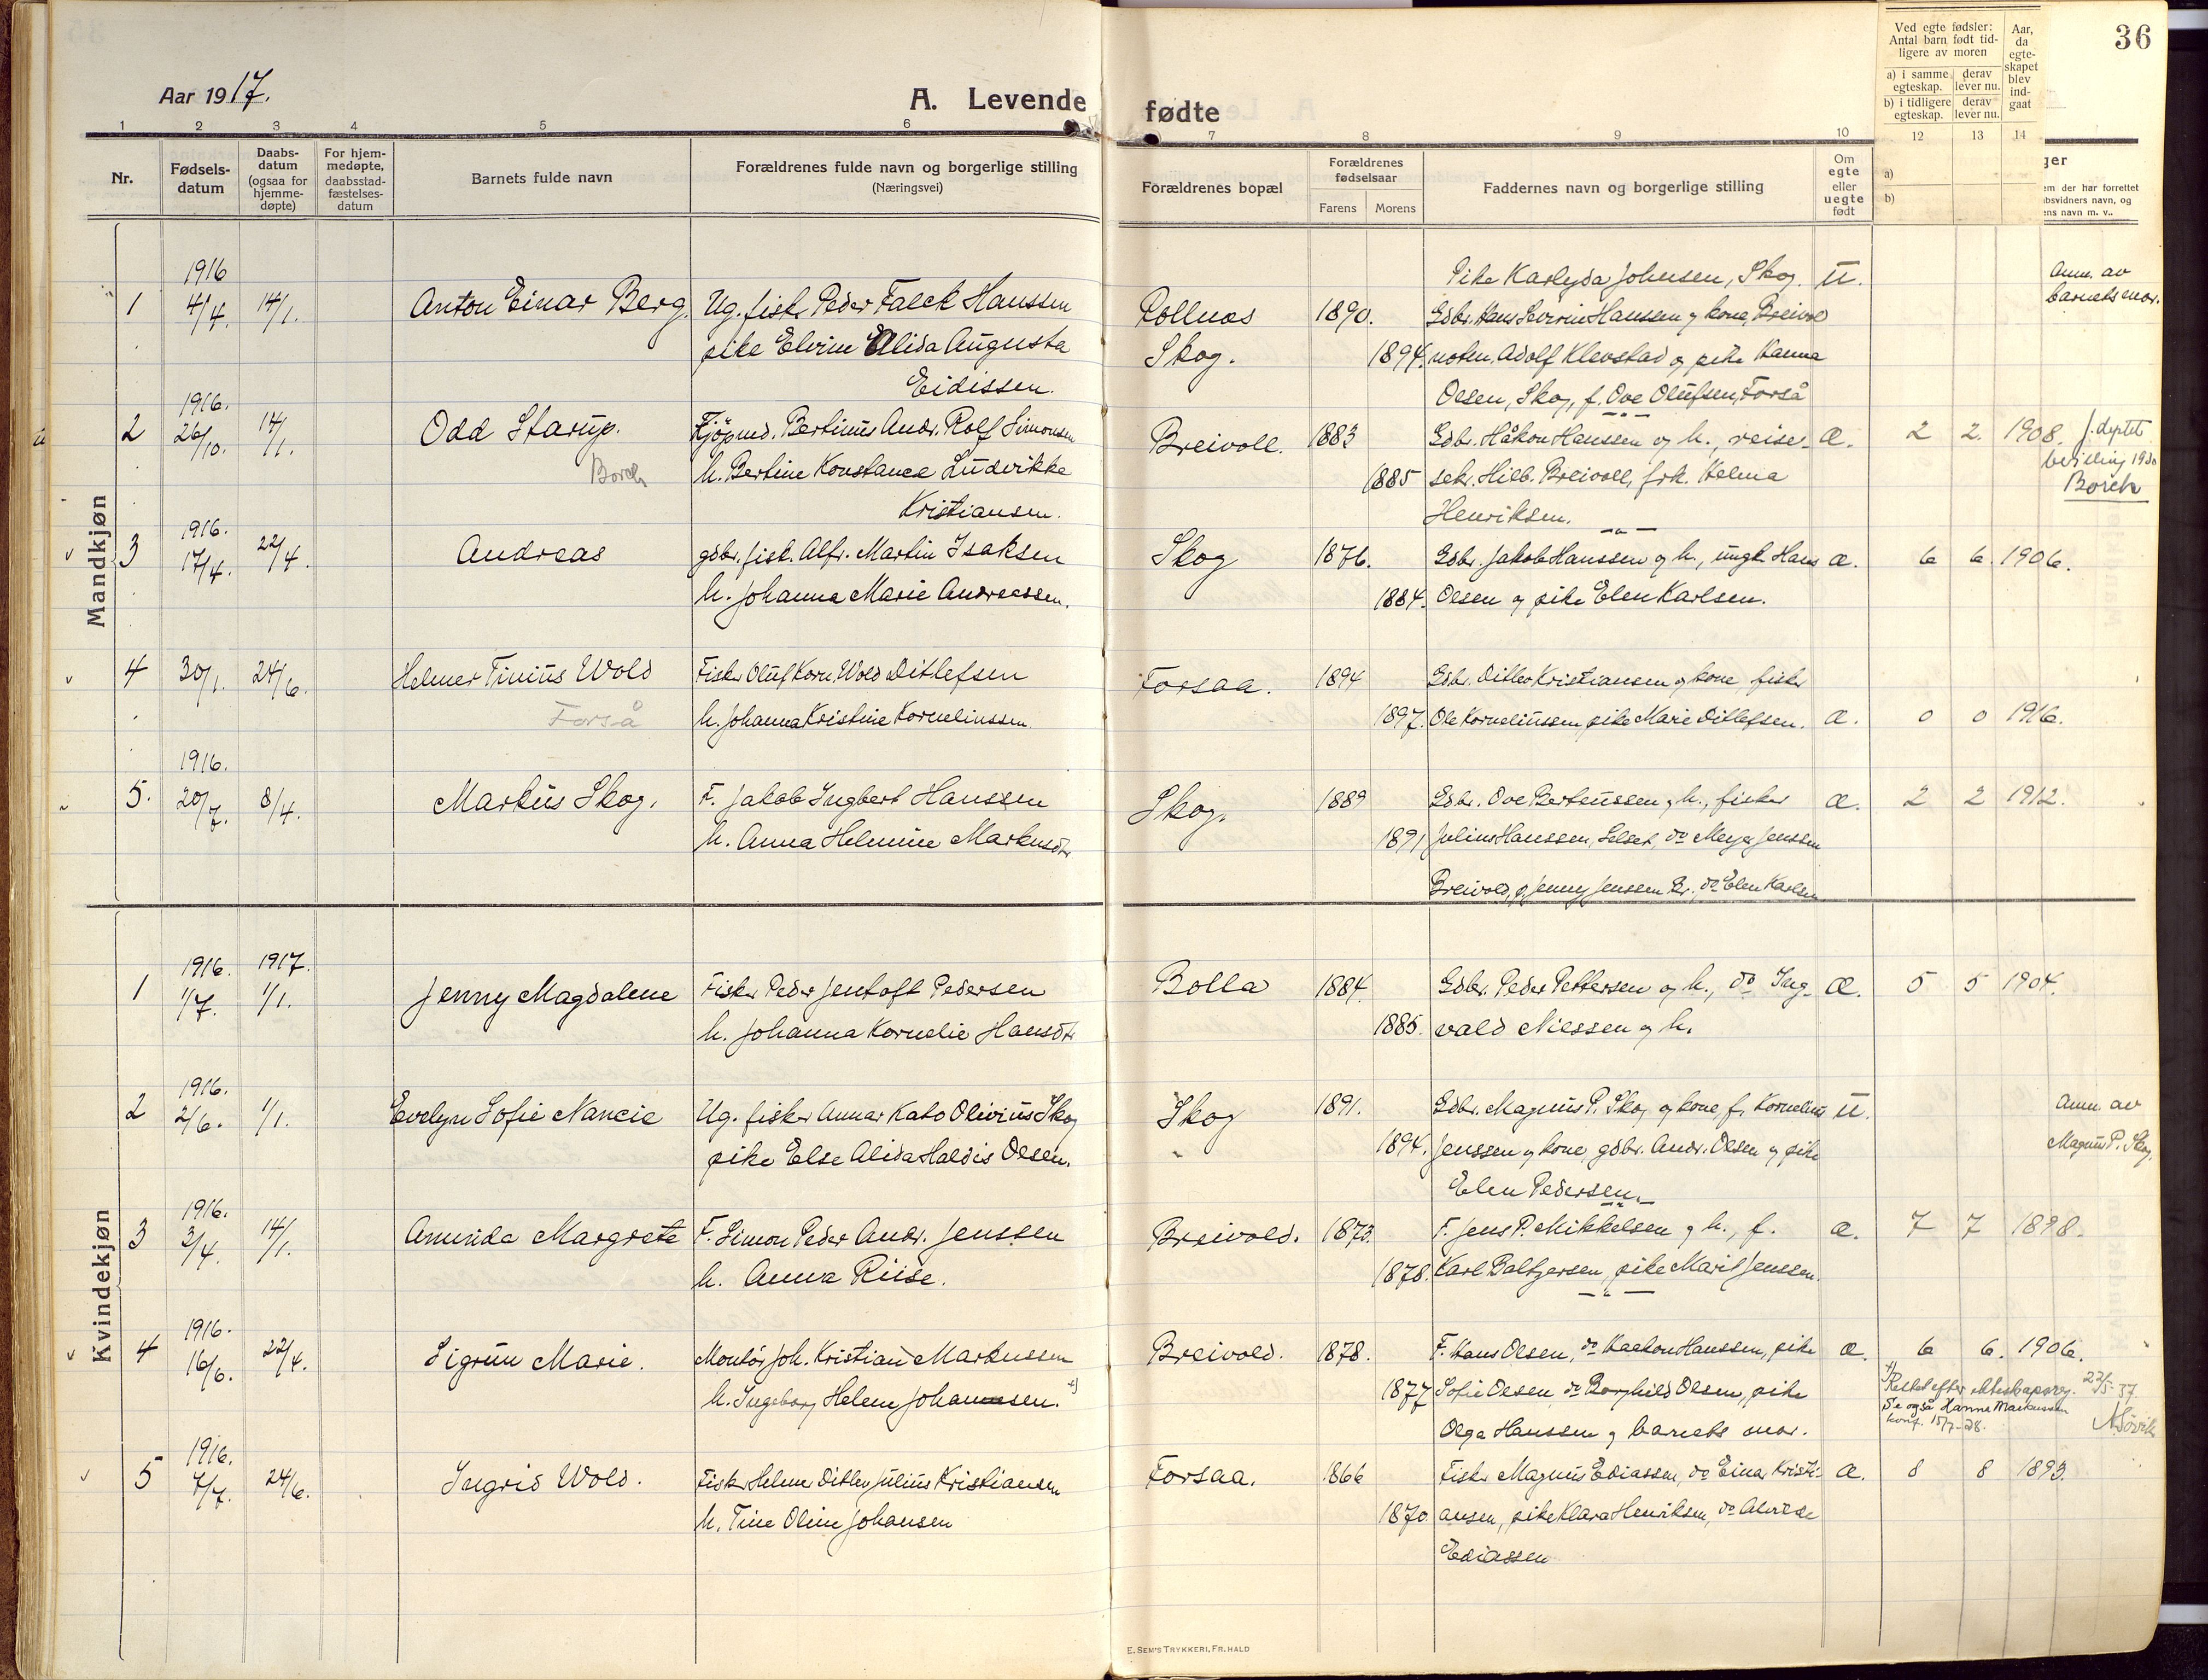 36
Aar 1917.
A. Levende fødte
1 2 3 4 5 6 7 8 9 10 12 13 14
Nr.
Fødsels-
datum
Daabs-
datum
(ogsaa for
hjemme-
døpte)
For hjem-
medøpte,
daabsstad-
fæstelses-
datum
Barnets fulde navn
Forældrenes fulde navn og borgerlige stilling
(Næringsvei)
Forældrenes bopæl
Forældrenes
fødselsaar
Farens Morens
Faddernes navn og borgerlige stilling
Om
egte
eller
uegte
født
Ved egte fødsler:
Antal barn født tid-
ligere av moren
a) i samme
egteskap.
derav
lever nu.
b) i tidligere
egteskap.
derav
lever nu.
Aar,
da
egte-
skapet
blev
ind-
gaat
a)
b)
ger
em der har forrettet
bsvidners navn, og
ens navn m. v..
Mandkjøn
1916
1 4/4. 14/1. Anton Einar Berg. Ug. fisk. Peder Falck Hanssen
pike Elvine Alida Augusta
Eidissen.
Pollnes 1890.
Skog. 1894.
Pike Karlyda Johnsen, Skog. u.
Gdbr. Hans Severin Hanssen og kone, Breivol
noten. Adolf Klevstad og pike Hanna
Olsen, Skog, f. Ove Olufsen, Forså
Anm. av
barnets mor.
1916.
2 26/10. 14/1. Odd Starup. Kjøpmd. Bertinus Andr. Rolf Simonsen
Borch h. Bertine Konstance Ludvikke
Kristiansen.
Breivoll. 1883
1885
Gdbr. Håkon Hanssen og h., reise- æ. 2 2. 1908.
sekr. Hilb. Breivoll, frk. Helma
Henriksen.
bevilling 1930
Borch
1916.
3 17/4. 22/4. Andreas gdbr. fisk. Alfr. Martin Isaksen
h. Johanna Marie Andreassen.
Skog 1876.
1884.
Gdbr. Jakob Hanssen og h., ungk. Hans æ. 6 6. 1906.
Olsen og pike Elen Karlsen.
4 30/1. 24/6. Helmer Tinius Wold Fisker Oluf Korn. Wold Ditlefsen
Forså h. Johanna Kristine Korneliussen
Forsaa. 1894
1897.
Gdbr. Ditlev Kristiansen og kone, fisker
Ole Korneliussen, pike Marie Ditlefsen. æ. 0 0 1916.
1916.
5. 20/7. 8/4. Markus Skog. F. Jakob Ingbert Hanssen
h. Anna Helmine Markusdtr
Skog. 1889
1891
Gdbr. Ove Berteussen og h., fisker æ. 2 2 1912.
Julius Hanssen, Selset, do Meyer Jenssen
Breivold, p. Jenny Jenssen Br., do Elen Karlsen
Kvindekjøn
1916. 1917.
1 1/7. 1/1. Jenny Magdalene Fisker Peder Jentoft Pedersen
h. Johanna Kornelie Hansdtr
Bolla 1884.
1885.
Gdbr. Peder Pettersen og h., do Ing- æ. 5 5 1904.
vald Nilssen og h.
1916.
2 2/6. 1/1. Evelyn Sofie Nancie Ug. fisker Annar Kato Olivius Skog
pike Else Alida Haldis Olsen.
Skog 1891.
" 1894.
Gdbr. Magnus P. Skog og kone, f. Kornelius u.
Jenssen og kone, gdbr. Andr. Olsen og pike
Elen Pedersen.
Anm. av
Magnus P. Skog.
1916.
3 3/4. 14/1. Amanda Margrete F. Simon Peder Andr. Jenssen
h. Anna Riise.
Breivold. 1873.
1878.
F. Jens P. Mikkelsen og h., f. æ. 7 7 1898.
Karl Baltzersen, pike Marit Jenssen.
1916.
4 16/6. 22/4. Sigrun Marie. Montør Joh. Kristian Markussen
h. Ingeborg Helene Johannesen. +)
Breivold. 1878.
1877
F. Hans Olsen, do Haakon Hanssen, pike æ. 6 6. 1906.
Sofie Olsen, do Borghild Olsen, pike
Olga Hanssen og barnets mor.
+) Rettet efter ekteskapsreg. 22/5-37
Se også Hanna Markussen
konf. 15/7-28.
1916.
5 7/7. 24/6. Ingrid Wold. Fisker Helmer Ditlev Julius Kristiansen
h. Tine Oline Johansen
Forsaa. 1866
1870
Fisker Magnus Ediassen, do Einar Kristi- æ. 8 8 1893.
ansen, pike Klara Henriksen, do Alvilde
Ediassen
E. SEM'S TRYKKERI, FR.HALD